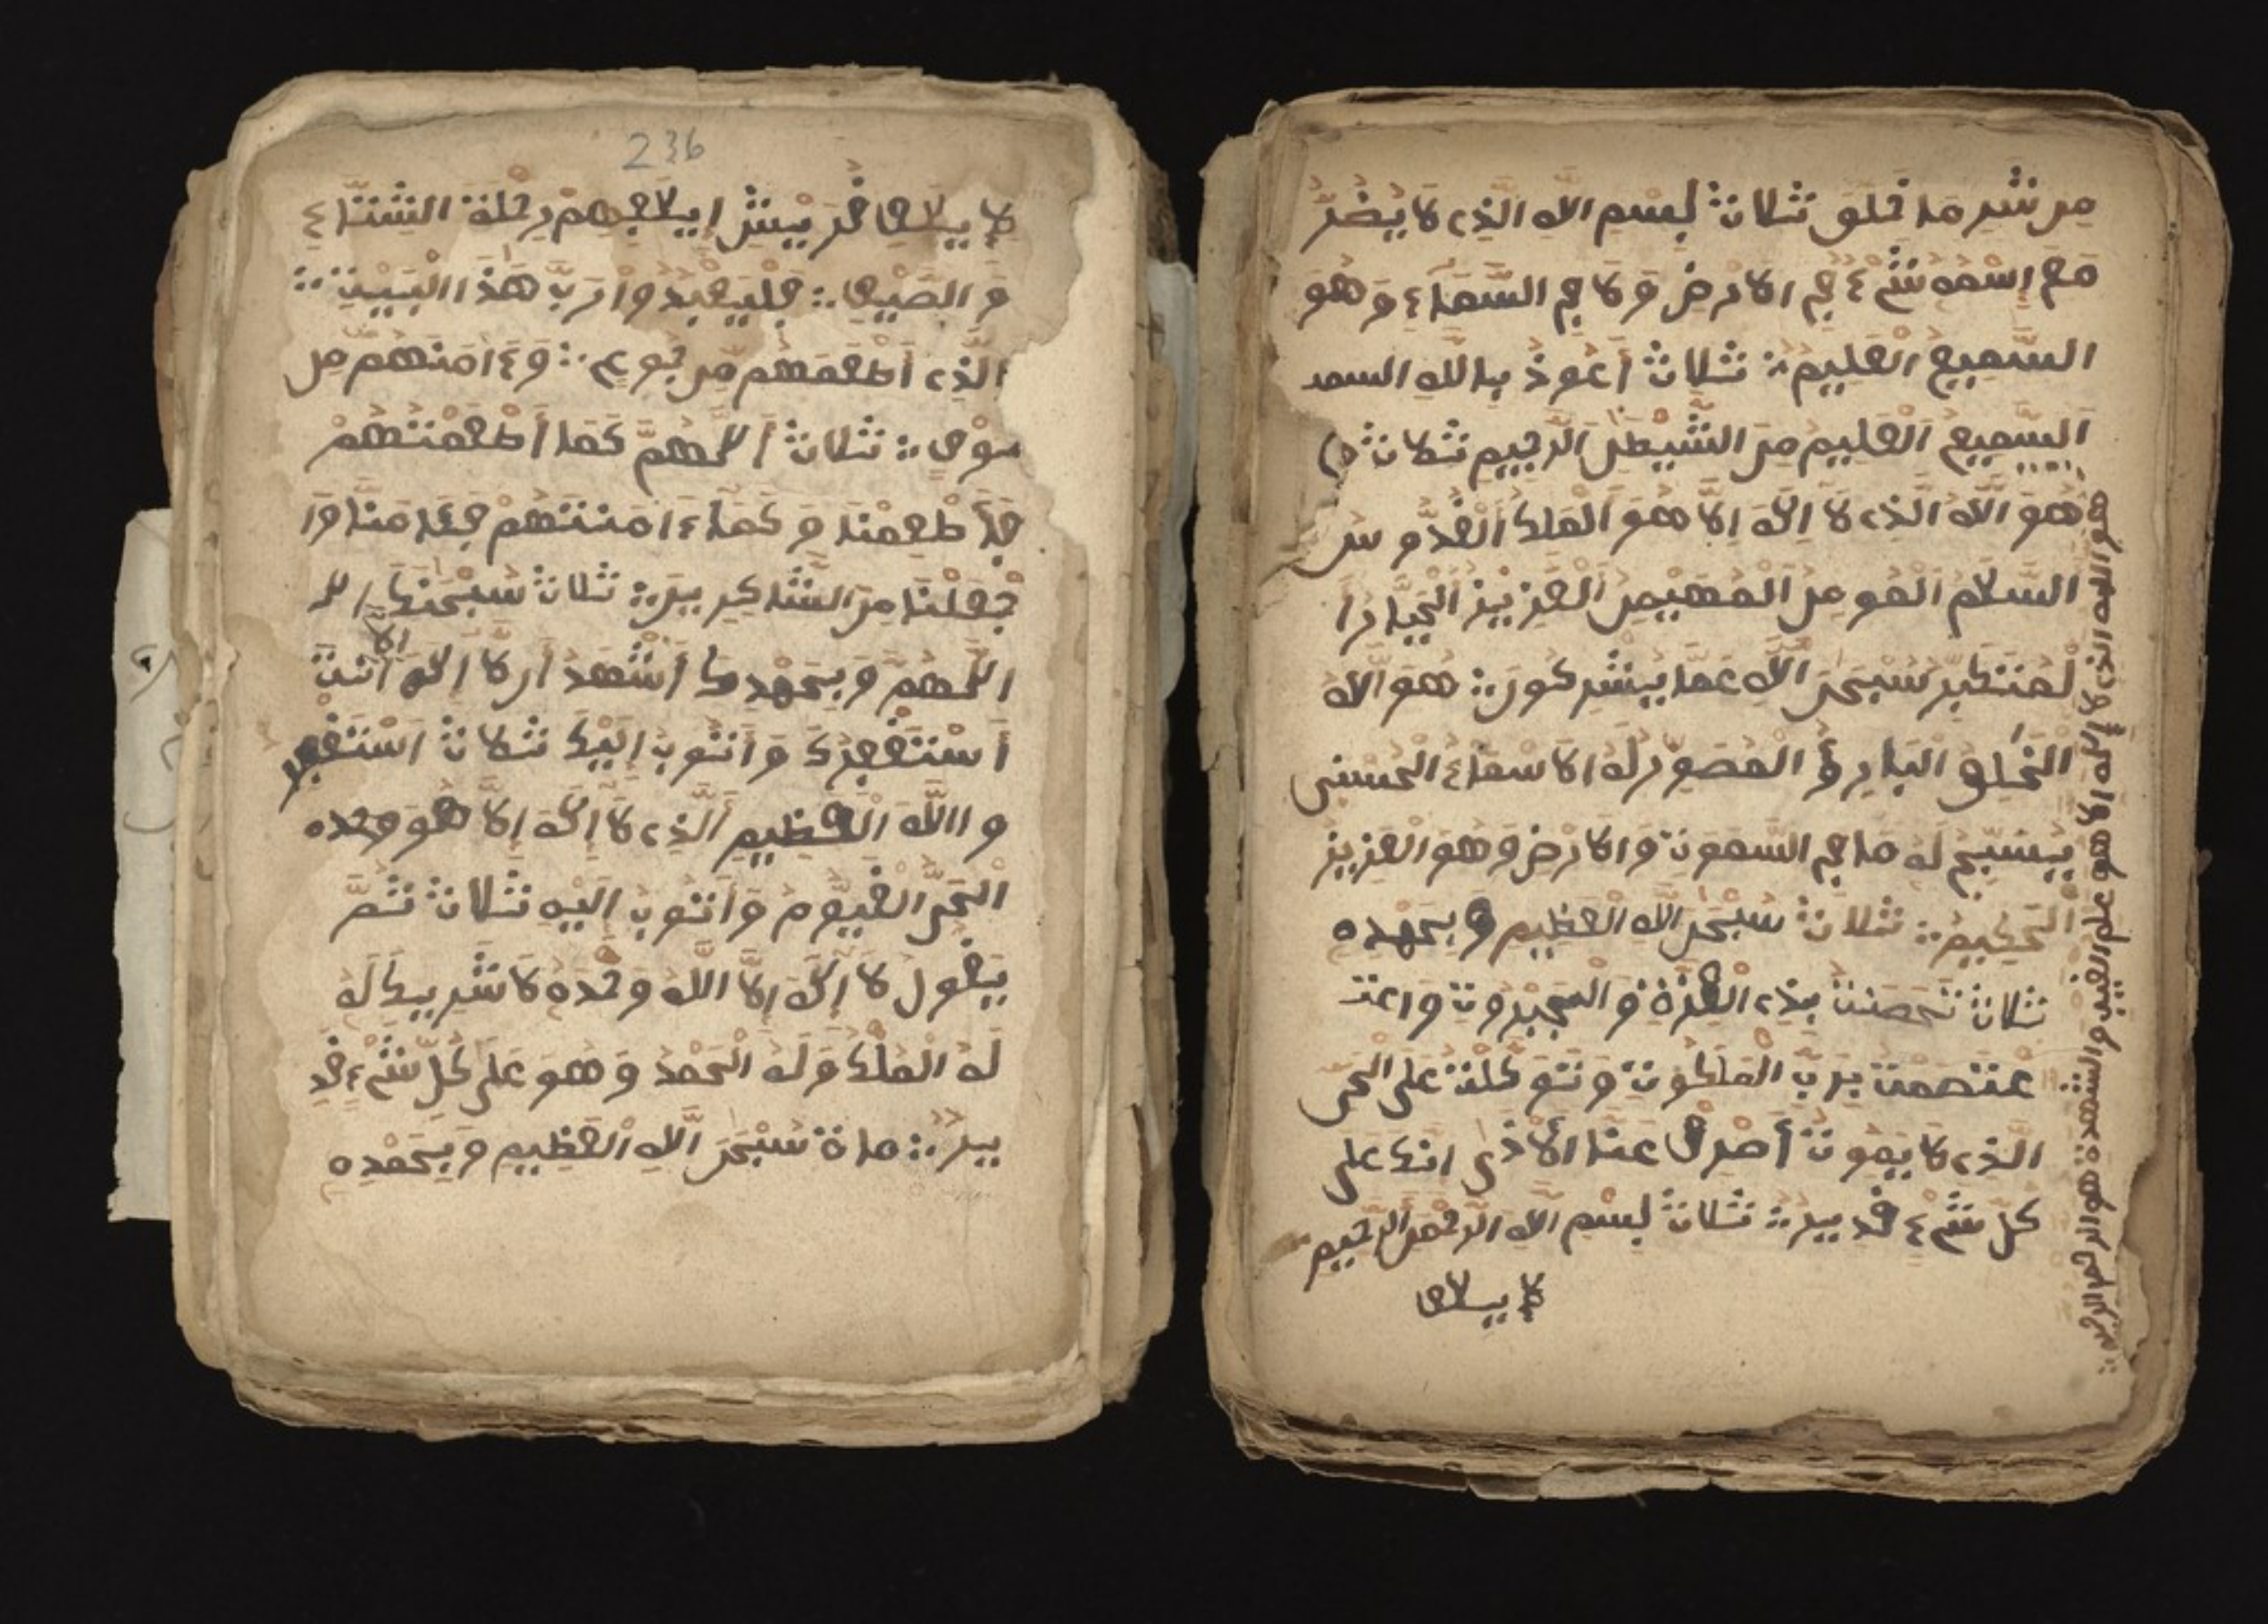 مِن شَرِّ مَا خَلَقَ ثلاث بِسْمِ اللهِ الذِي لَا يَضُرُّ
مَعَ اِسْمِهِ شَيْءٌ فِي الارْضِ وَلَا فِي السَّمَاءِ وَهُوَ
السَّمِيعُ الْعَلِيمُ ثلاث أَعُوذُ بِاللهِ السمد
السَّمِيعِ الْعَلِيمِ مِنَ الشَّيْطَنِ الرَّجِيمِ ثلاث
هُوَ اللهُ الَّذِي لَا إِلَهَ إِلَّا هُوَ الْمَلِكُ الْقُدُّوس
السَّلَامُ الْمُومِنُ الْمُهَيْمِنُ الْعَزِيزُ الْجَبَّارُ ا
لْمُتَكَبِّرُ سُبْحَنَ اللهِ عَمَّا يُشْرِكُونَ هُوَ اللهُ
الْخَلِقُ الْبَارِئُ الْمُصَوِّرُ لَهُ الاسْمَاءُ الْحُسْنَى
يُسَبِّحُ لَهُ مَا فِي السَّمَوَتِ وَالارْضِ وَهُوَ الْعَزِيزُ
الْحَكِيمُ ثلاث سُبْحَنَ اللهِ الْعَظِيمِ وَبِحَمْدِهِ
ثلاث تَحَصَّنْتُ بِذِي الْعِزَّةِ وَالْجَبَرُوتِ وَاعتـ
عْتَصَمْتُ بِرَبِّ الْمَلَكُوتِ وَتَوَكَّلْتُ عَلَى الْحَيِّ
الَّذِي لَا يَمُوتُ أَصْرِفْ عَنَّا الأَذَى انك عَلَى
كُلِّ شَيْءٍ قَدِيرٌ ثلاث بِسْمِ اللهِ الرَّحْمَنِ الرَّحِيمِ
لايلاف
هو الله الذي لا إله إلا هو علم الغيب والشهدة هو الرحمن الرحيم
236
لِإِيلَافِ قُرَيْشٍ إِيلَافِهِمْ رِحْلَةَ الشِّتَاءِ
وَالصَّيْفِ فَلْيَعْبُدُوا رَبَّ هَذَا الْبَيْتِ
الَّذِي أَطْعَمَهُم مِّن جُوعٍ وَءَامَنَهُم مِّن
خَوْفٍ ثلاث أَللَّهُمَّ كَمَا أَطْعَمْتَهُمْ
فَأَطْعِمْنَا وَكَمَا ءَامَنْتَهُمْ فَءَامِنَّا وَا
جْعَلْنَا مِنَ الشَّاكِرِينَ ثلاث سُبْحَنَكَ
اللَّهُمَّ وَبِحَمْدِكَ أَشْهَدُ أَن لَا إِلَهَ الا أَنْتَ
أَسْتَغْفِرُكَ وَأَتُوبُ إِلَيْكَ ثلاث اسْتَغْفِر
و اللَّهَ الْعَظِيمَ الَّذِي لَا إِلَهَ إِلَّا هُوَ وحده
الْحَيَّ الْقَيُّومَ وَأَتُوبُ إِلَيْهِ ثلاث ثُمَّ
يَقُولُ لَا إِلَهَ إِلَّا اللَّهُ وَحْدَهُ لَا شَرِيكَ لَهُ
لَهُ الْمُلْكُ وَلَهُ الْحَمْدُ وَهُوَ عَلَى كُلِّ شَيْءٍ قَدِ
يرٌ ماة سُبْحَنَ اللَّهِ الْعَظِيمِ وَبِحَمْدِهِ